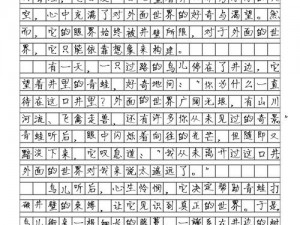 空，心中充满了对外面世界的好奇与渴望。然
而，它的眼界始终被井壁所限，对于外面的世
界，它只能依靠想象来构建。
有一天，一只过路的鸟儿停在了井边，它
望着井里的青蛙，好奇地问：“你为什么一直
待在这口井里？外面的世界广阔无垠，有山川
河流、飞禽走兽，还有许多你未曾见过的奇景。”
青蛙听后，眼中闪烁着向往的光芒，但随即又
黯淡下来，它叹息道：“我从未离开过这口井
外面的世界对我来说太遥远了。”
鸟儿听后，心生怜悯，它决定帮助青蛙打
破井壁的束缚，让它见识到真正的世界。于是